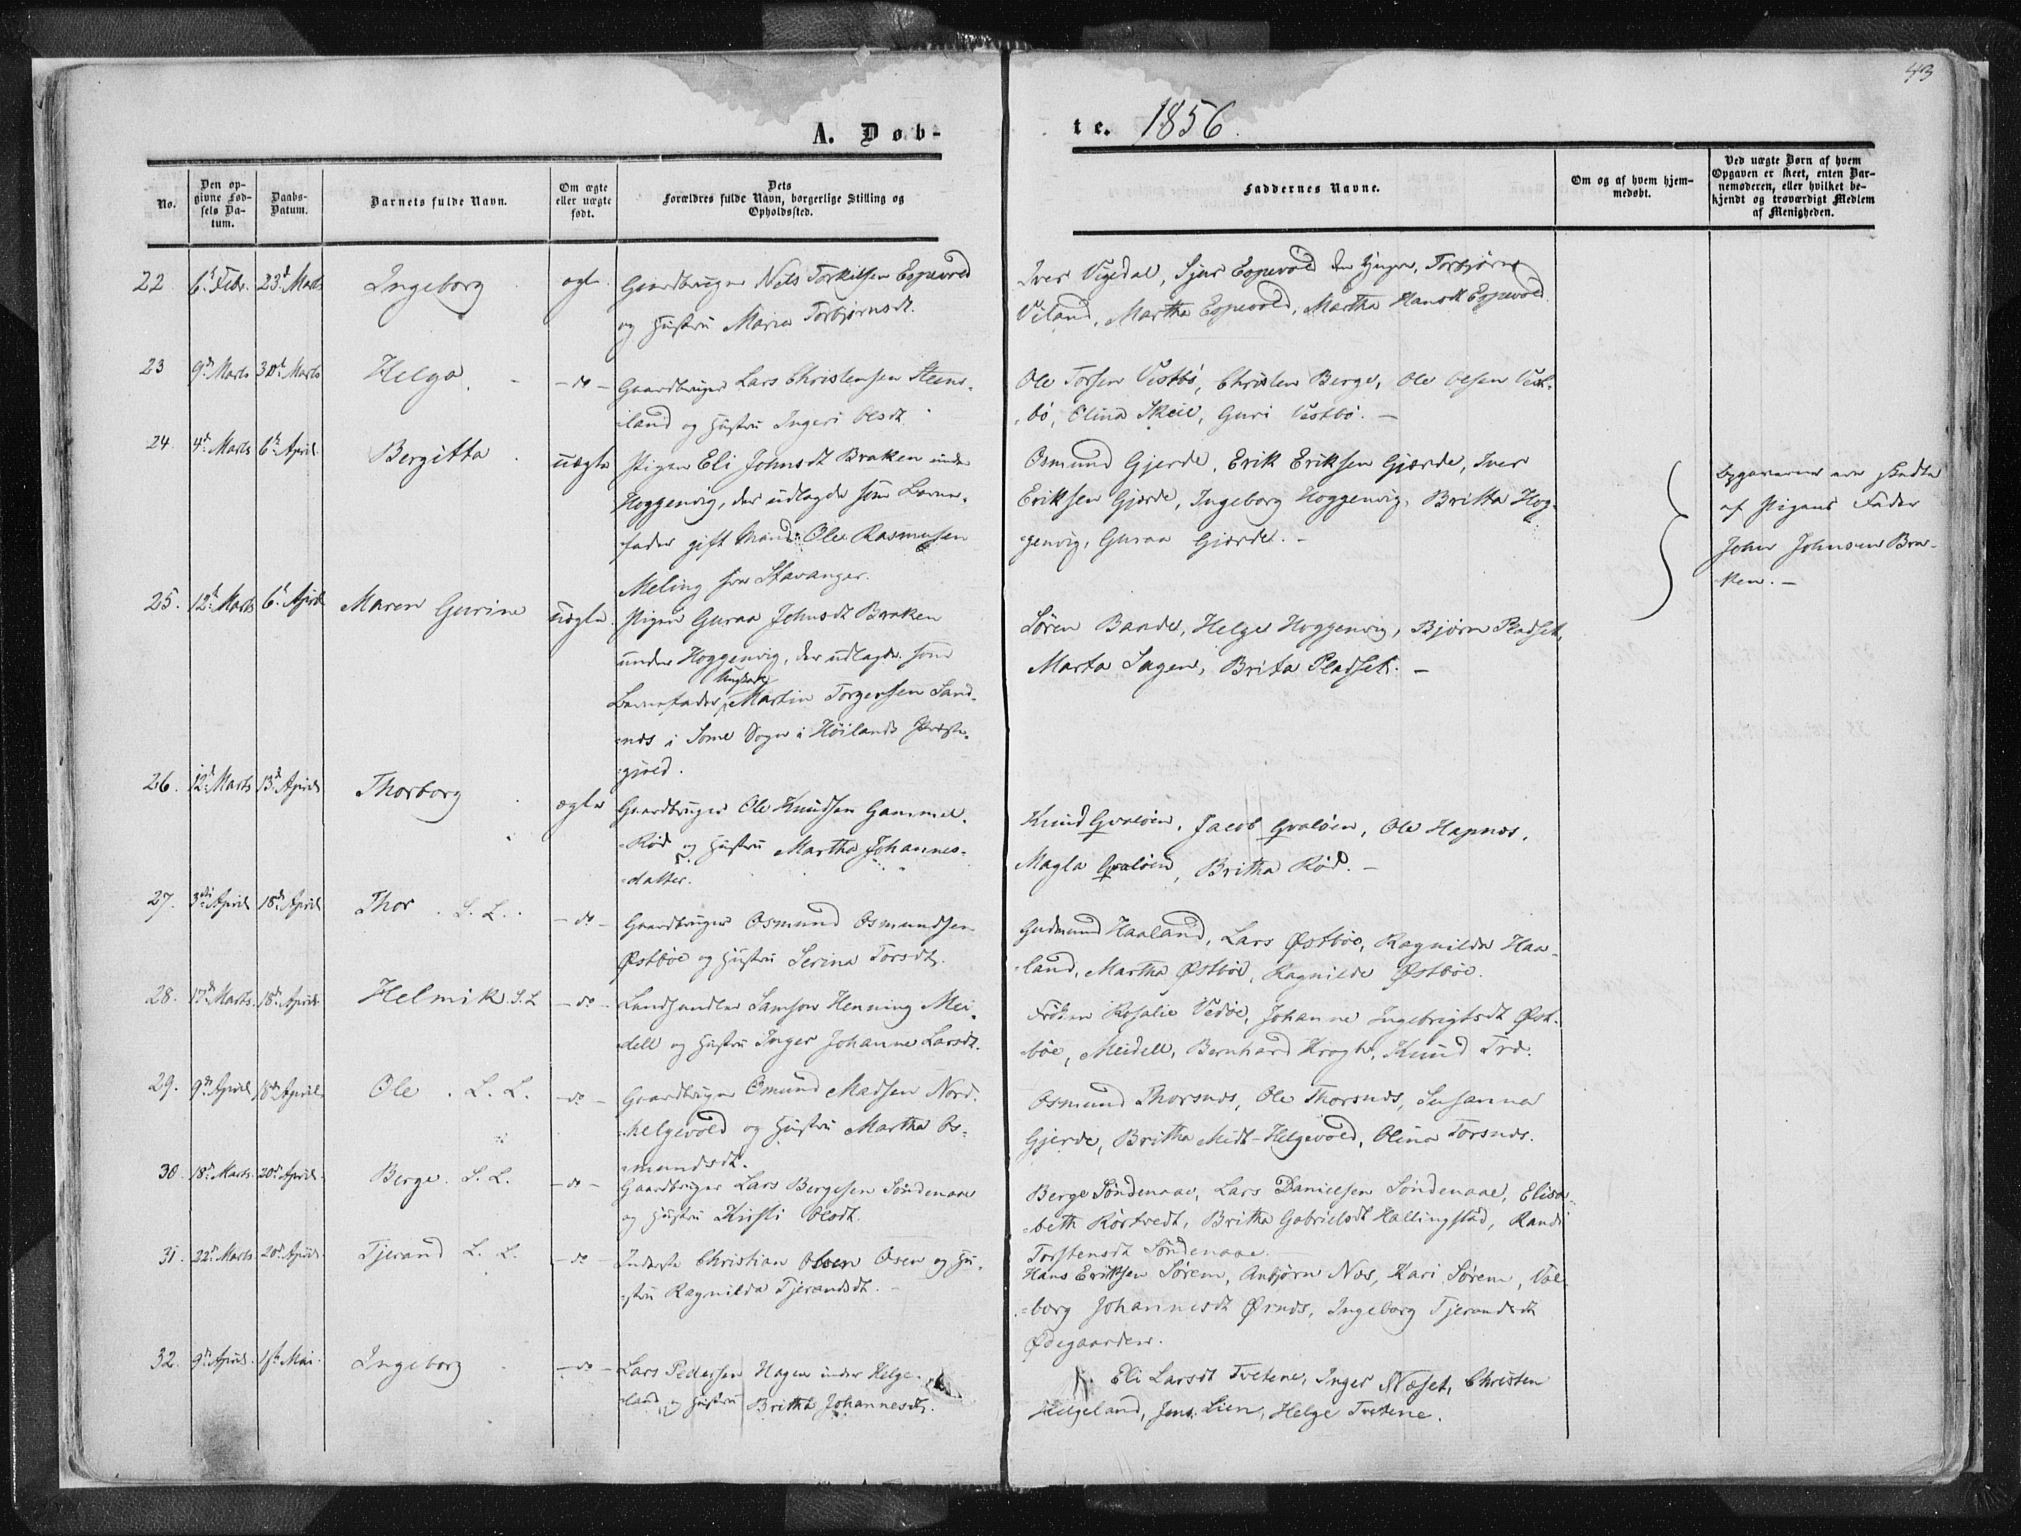 43
A. Døb-
te. 1856.
No.
Den opgivne Fødsels Datum.
Daabs-Datum.
Barnets fulde Navn.
Om ægte eller uægte født.
Dets Forældres fulde Navn, borgerlige Stilling og Opholdssted.
Faddernes Navne.
Om og af hvem hjemmedøbt.
Ved uægte Børn af hvem Opgaven er skeet, enten Barnemoderen, eller hvilket bekjendt og troværdigt Medlem af Menigheden.
22 6t Febr. 23d Marts Ingeborg ægte Gaardbruger Nils Torkilsen Espevold
og Hustru Maria Torbjørnsdt.
Iver Vigedal, Sjur Espevold den yngre, Torbjørn
Viland, Martha Espevold, Martha Hansdt Espevold.
23 9d Marts 30d Marts Helga - do - Gaardbruger Lars Christensen Steens-
land og Hustru Ingeri Olsdt.
Ole Torsen Vestbö, Christen Berge, Ole Olsen Vest-
bö, Elina Skeie, Guri Vestbö. -
24. 4d Marts 6te April Bergitta uægte Pigen Eli Johnsdt Braken under
Hoggenvig, der udlagde som Barne-
fader gift Mand Ole Rasmusen
Meling fra Stavanger.
Osmund Gjerde, Erik Eriksen Gjærde, Iver
Eriksen Gjærde, Ingeborg Hoggenvig, Britta Hog-
genvig, Guraa Gjærde. -
Opgaverne ere skedte
af Pigens Fader
John Johnsen Bra-
ken. -
25. 12d Marts 6t April Maren Gurine uægte Pigen Guraa Johnsdt Braken
under Hoggenvig, der udlagde som
Ungkarl
Barnefader Martin Torgersen Sand-
nes i Some Sogn i Höilands Præste-
gjeld.
Sören Baade, Helge Hoggenvig, Bjørn Pladset,
Marta Sagen, Brita Pladset. -
26. 12d Marts 13d April Thorborg ægte Gaardbruger Ole Knudsen Gammel-
Röd og Hustru Martha Johannes-
datter.
Knud Gvaløen, Jacob Gvaløen, Ole Hapnes,
Magla Gvaløen, Britha Rød. -
27. 3die April 18d April Thor. S. L. - do - Gaardbruger Osmund Osmundsen
Østböe og Hustru Serina Torsdt.
Gudmund Haaland, Lars Østböe, Ragnilda Haa-
land, Martha Østböe, Ragnilde Østböe.
28. 17d Marts 18d April Helmik S. L - do - Landhandler Samson Henning Mei-
dell og Hustru Inger Johanne Larsdt.
Fröken Rosalie Vedöe, Johanne Ingebrigtsdt Øst-
böe, Meidell, Bernhard Krogh, Knud Træ.
29. 9de April 18de April Ole. L. L. - do - Gaardbruger Omund Madsen Nord-
helgevold og Hustru Martha Os-
mundsdt.
Osmund Thorsnes, Ole Thorsnes, Susanna
Gjerde, Britha Midt-Helgevold, Olina Torsnes.
30. 18d Marts 20d April Berge. S. L. - do - Gaardbruger Lars Bergesen Söndenaae
og Hustru Kirsti Olsdt.
Berge Söndenaae, Lars Danielsen Söndenaae, Elisa-
beth Rörtvedt, Britha Gabrielsdt Hallingstad, Randi
Torstensdt Söndenaae.
31. 22d Marts 20d April Tjerand L. L. - do - Inderste Christian Olsen Osen og Hu-
stru Ragnilda Tjerandsdt. -
Hans Eriksen Sörem, Anbjörn Næs, Kari Sörem, Val-
borg Johannesdt Ørnes, Ingeborg Tjerandsdt
Ødegaarden.
32. 9de April 1ste Mai Ingeborg - do - Lars Pedersen Hagen under Helge-
land og Hustru Britha Johannesdt.
Eli Larsdt Tvetene, Inger Næset, Christen
Helgeland, Jens Lien, Helge Tvetene.